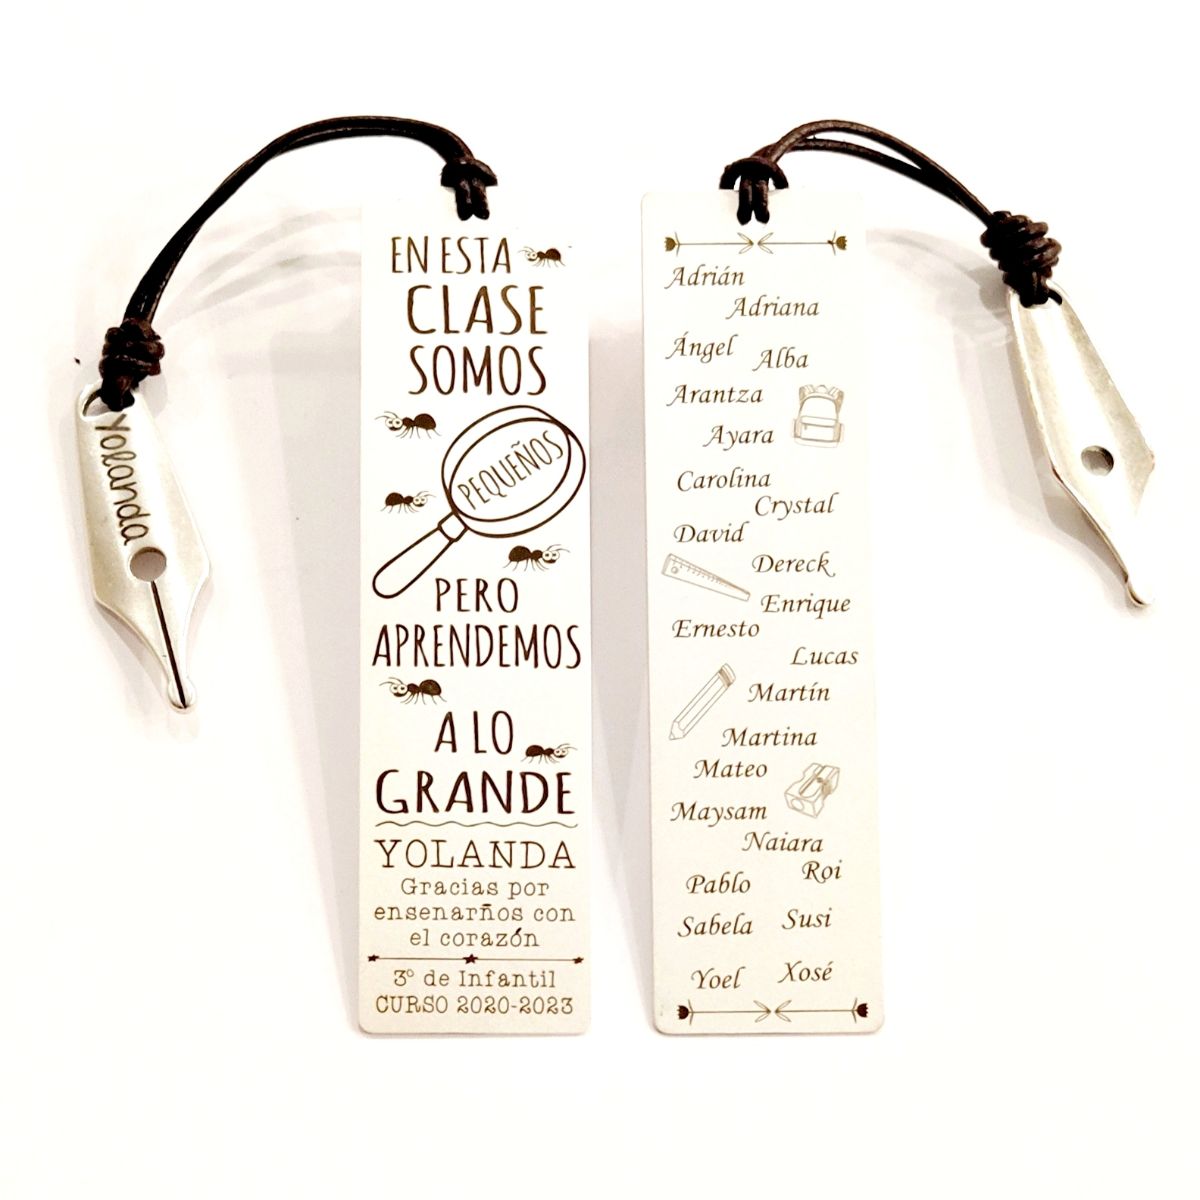 Yolanda
EN ESTA
CLASE
SOMOS
PEQUEÑOS
PERO
APRENDEMOS
A LO
GRANDE
YOLANDA
Gracias por
ensenarños con
el corazón
3º de Infantil
CURSO 2020-2023
Adrián
Adriana
Ángel
Alba
Arantza
Ayara
Carolina
Crystal
David
Dereck
Enrique
Ernesto
Lucas
Martín
Martina
Mateo
Maysam
Naiara
Roi
Pablo
Sabela
Susi
Yoel
Xosé